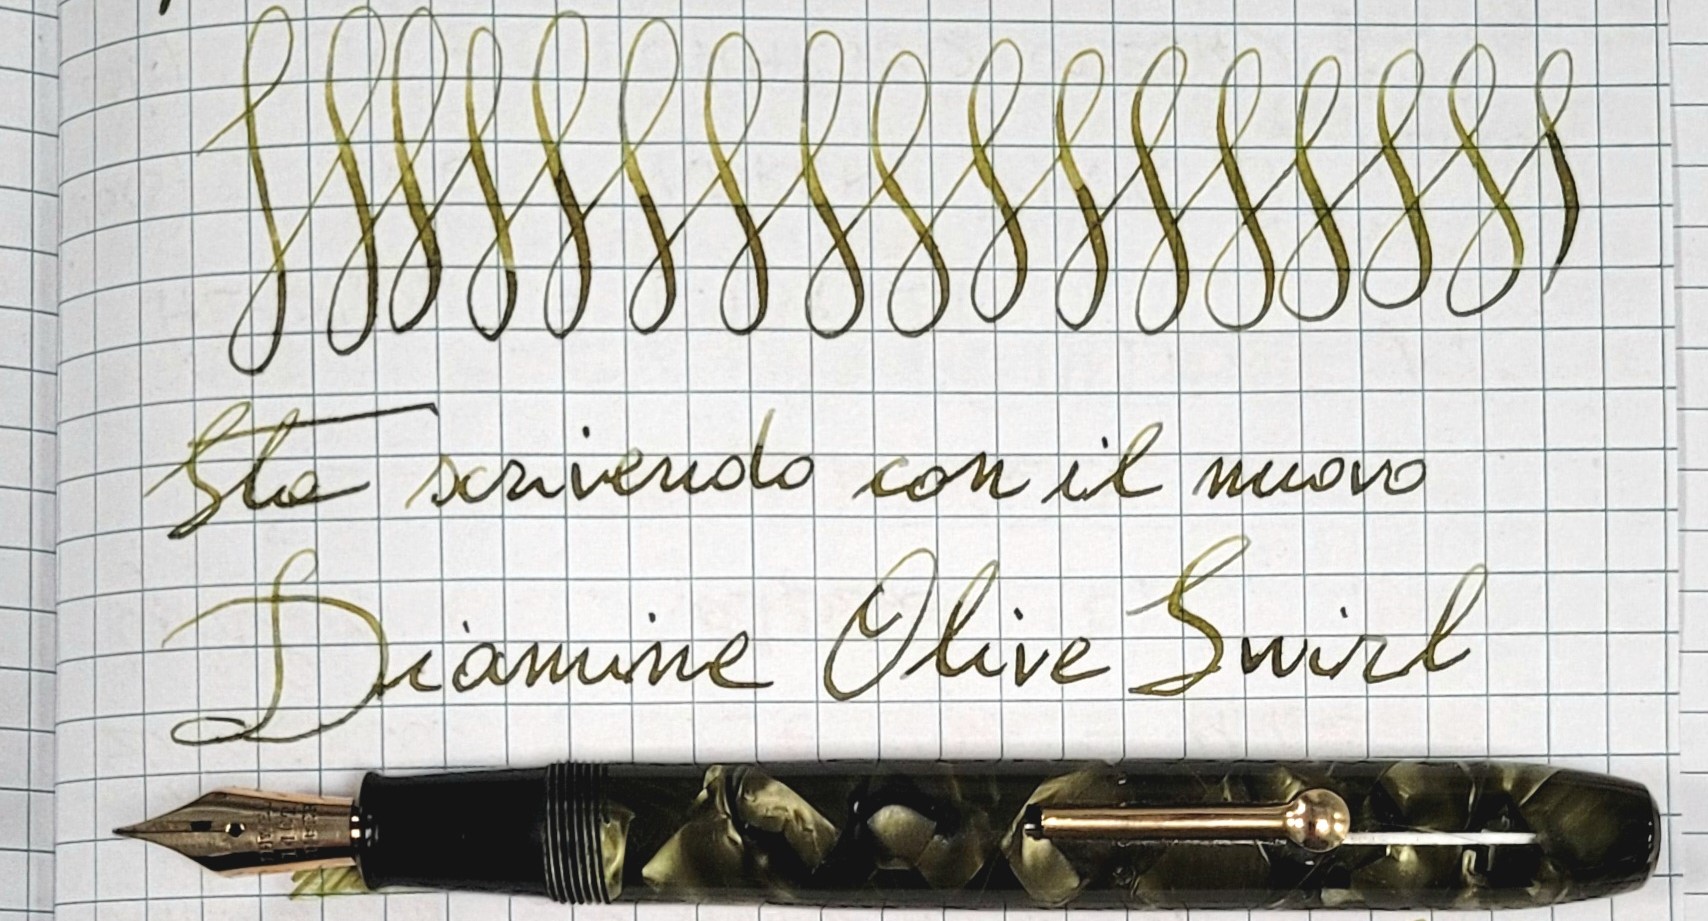 Sto scrivendo con il nuovo
Diamine Olive Swirl